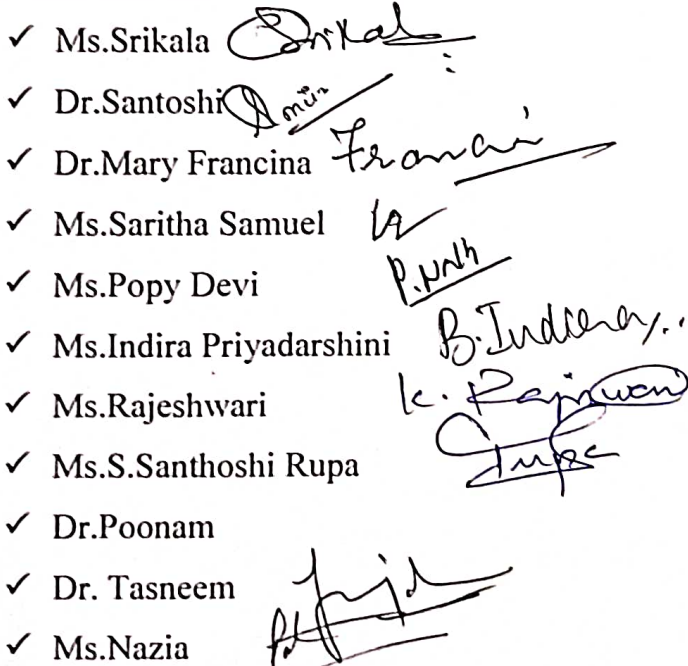 ✓ Ms.Srikala Srikala
✓ Dr.Santoshi
✓ Dr.Mary Francina Francina
✓ Ms.Saritha Samuel
✓ Ms.Popy Devi P.Nath
✓ Ms.Indira Priyadarshini B.Indira
✓ Ms.Rajeshwari K. Rajeswari
✓ Ms.S.Santhoshi Rupa Rupa
✓ Dr.Poonam
✓ Dr. Tasneem
✓ Ms.Nazia